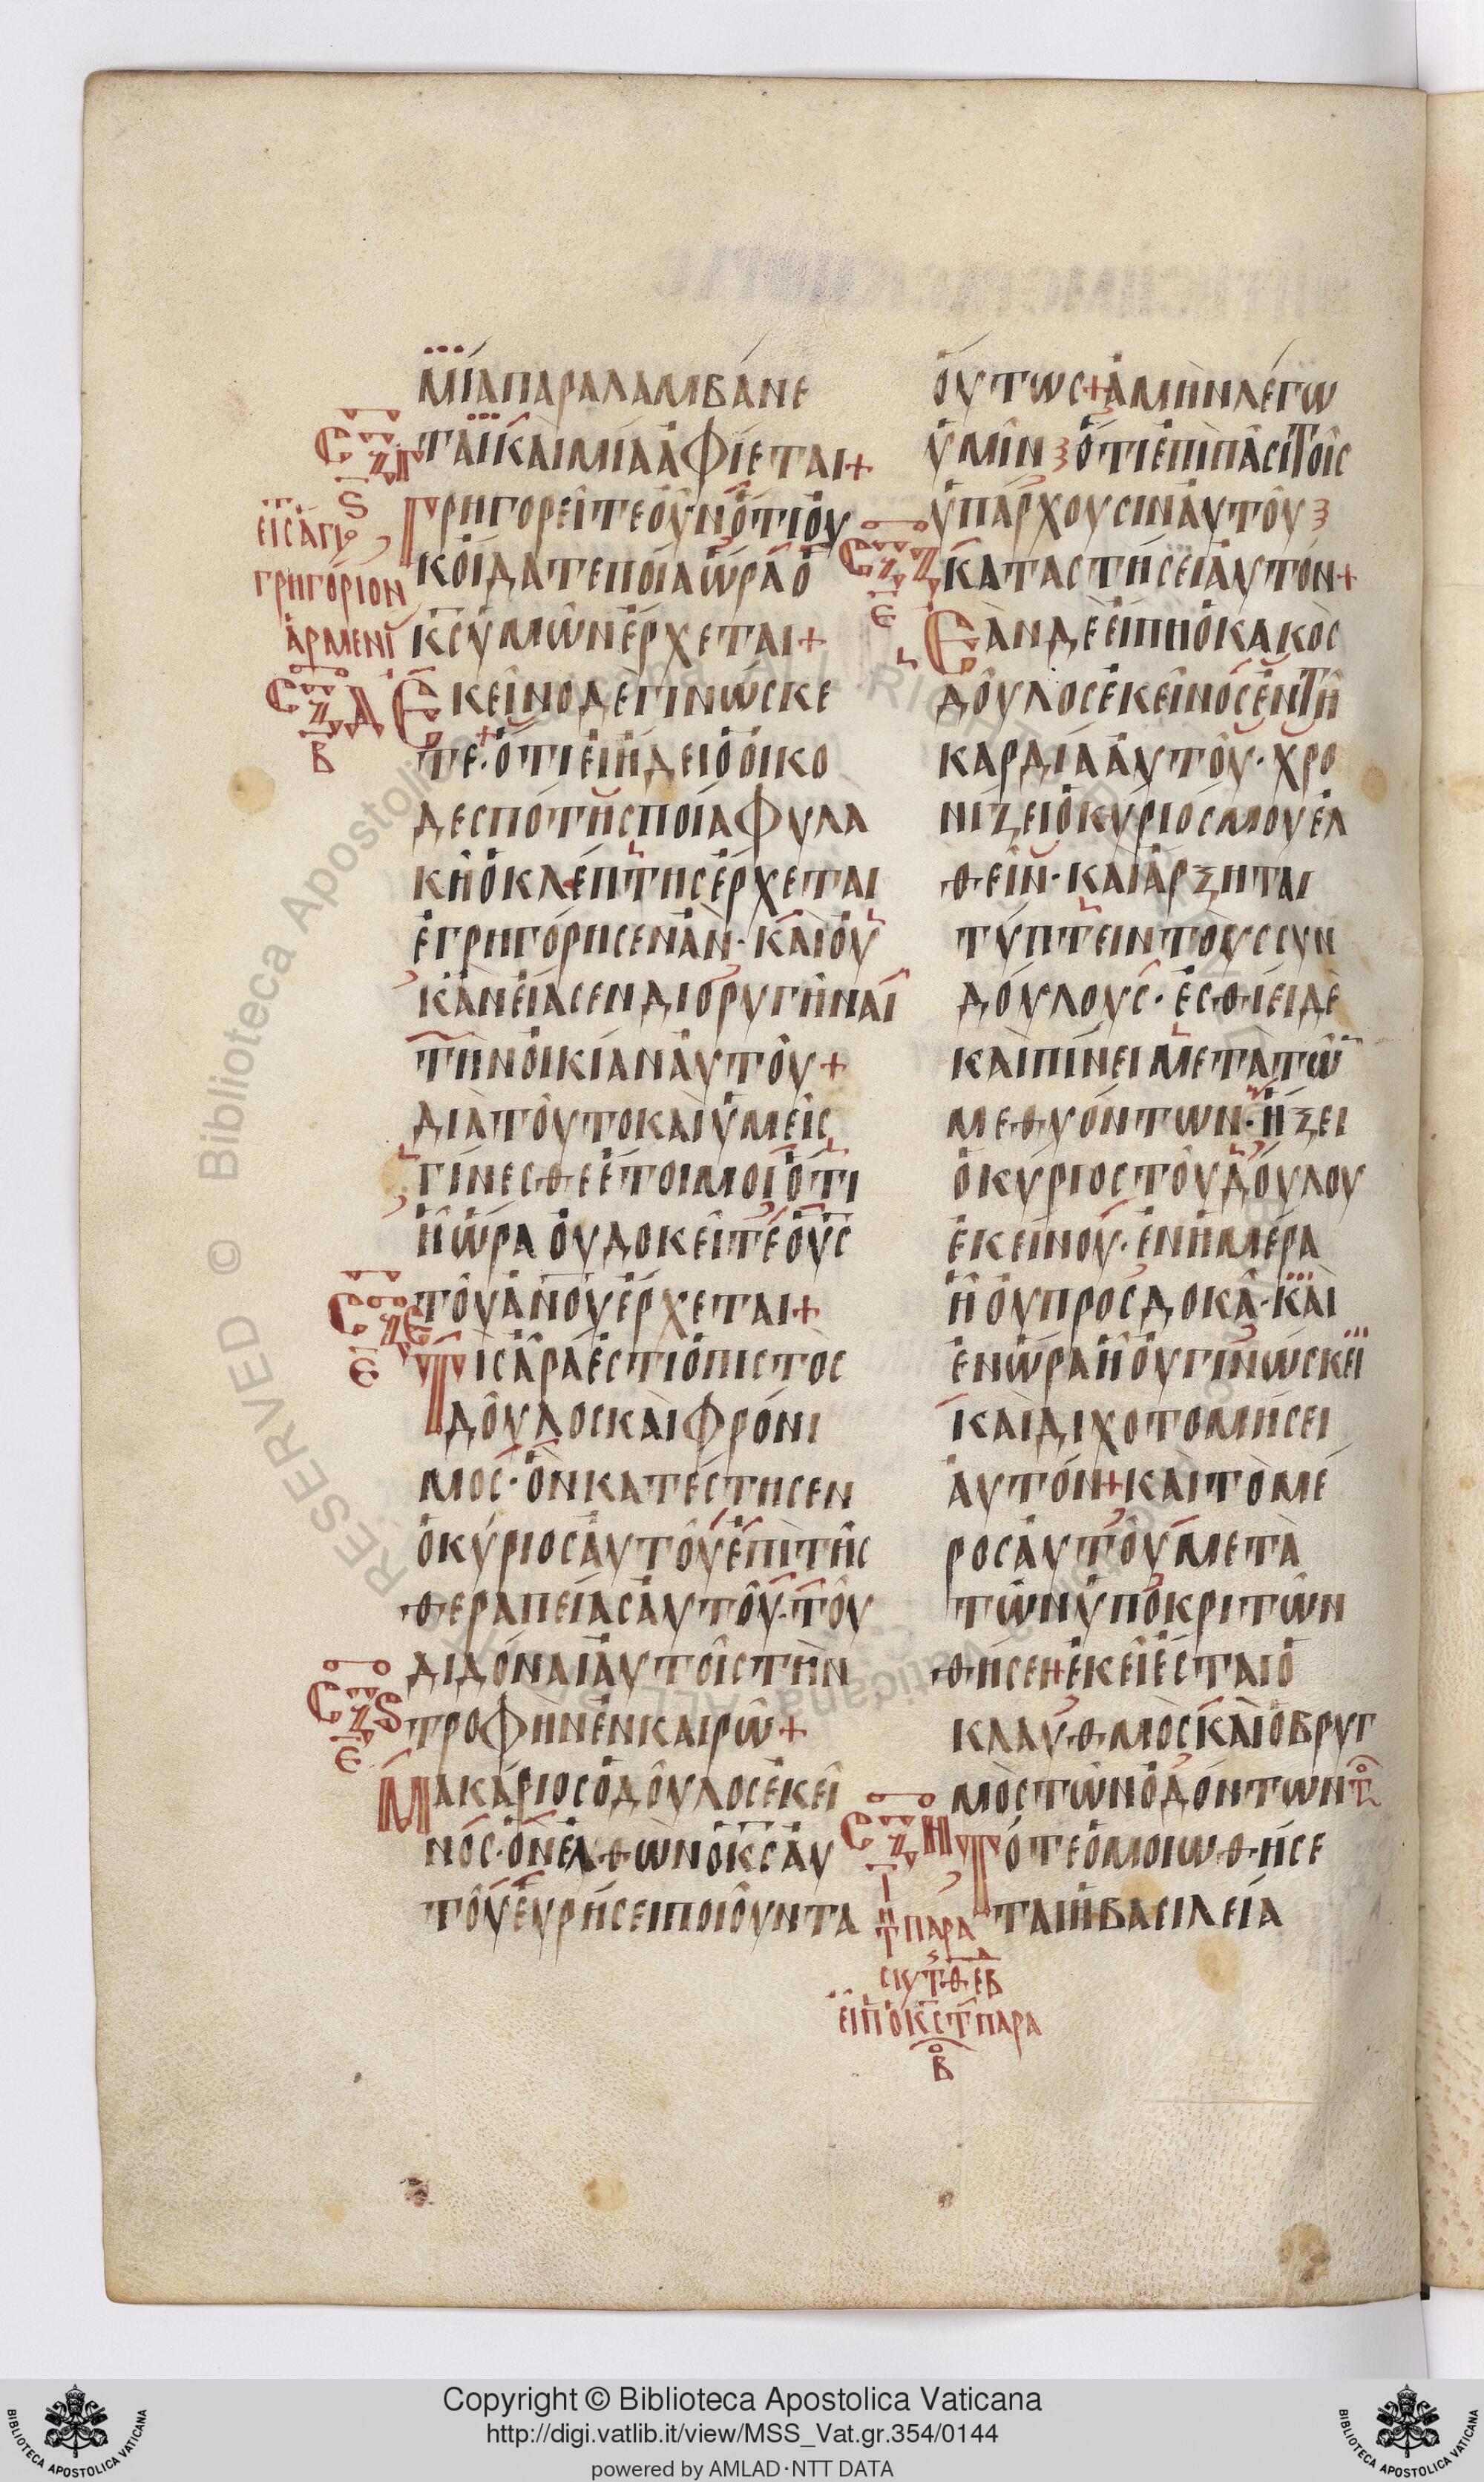 μία παραλαμβάνε
ται καὶ μία ἀφίεται+
Γρηγορεῖτε οὖν ὅτι οὐ
κ οἴδατε ποία ὥρα ὁ
κ̅ς̅ ὑμῶν ἔρχεται+
Ἐκεῖνο δὲ γινώσκε
τε· ὅτι εἰ ἤδει ὁ οἰκο
δεσπότης ποία φυλα
κῆ ὁ κλέπτης ἔρχεται
ἐγρηγόρησεν ἄν· καὶ οὐ
κ ἂν εἴασεν διορυγῆναι
τὴν οἰκίαν αὐτοῦ+
διὰ τοῦτο καὶ ὑμεῖς
γίνεσθε ἕτοιμοι ὅτι
ἧ ὥρα οὐ δοκεῖτε ὁ υ̅ς̅
τοῦ α̅ν̅ο̅υ̅ ἔρχεται+
Τίς ἄρα ἐστὶ ὁ πιστὸς
δοῦλος καὶ φρόνι
μος· ὃν κατέστησεν
ὁ κύριος αὐτοῦ ἐπὶ τῆς
θεραπείας αὐτοῦ· τοῦ
διδόναι αὐτοῖς τὴν
τροφὴν ἐν καιρῶ+
Μακάριος ὁ δοῦλος ἐκεῖ
νος· ὃν ἐλθὼν ὁ κ̅ς̅ αὐ
τοῦ εὑρήσει ποιοῦντα
οὕτως+ ἀμὴν λέγω
ὑμῖν ὅτι ἐπὶ πᾶσι τοῖς
ὑπάρχουσιν αὐτοῦ
καταστήσει αὐτόν+
Ἐὰν δὲ εἴπη ὁ κακὸς
δοῦλος ἐκεῖνος ἐν τῆ
καρδία αὐτοῦ· χρο
νίζει ὁ κύριός μου ἐλ
θεῖν· καὶ ἄρξηται
τύπτειν τοὺς συν
δούλους· ἐσθίει δὲ
καὶ πίνει μετὰ τῶ̅
μεθυόντων· ἥξει
ὁ κύριος τοῦ δούλου
ἐκείνου· ἐν ἡμέρα
ἧ οὐ προσδοκᾶ· καὶ
ἐν ὥρα ἧ οὐ γινώσκει
καὶ διχοτομήσει
αὐτόν+ καὶ τὸ μέ
ρος αὐτοῦ μετὰ
τῶν ὑποκριτῶν
θήσει+ ἐκεῖ ἔσται ὁ
κλαυθμὸς καὶ ὁ βρυγ
μὸς τῶν ὀδόντων
Τότε ὁμοιωθήσε
ται ἡ βασιλεία
εἰς ἅγι
γρηγόριον
ἀρμενί
τ παρα
Copyright © Biblioteca Apostolica Vaticana
http://digi.vatlib.it/view/MSS_Vat.gr.354/0144
powered by AMLAD·NTT DATA
BIBLIOTECA APOSTOLICA VATICANA
BIBLIOTECA APOSTOLICA VATICANA